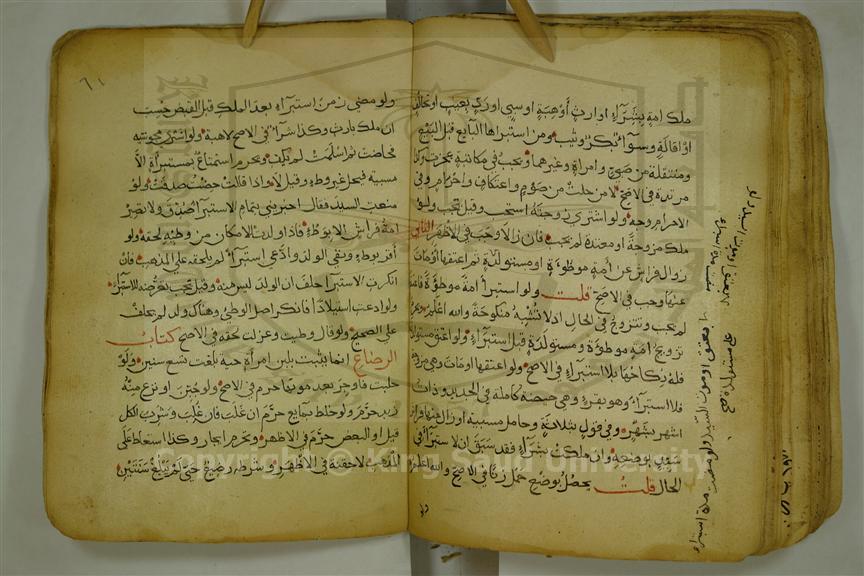 ملك امة بشراء او ارث أو هبة او سبي اورد بعيب او تحالف
او اقالة وسواء بكر وثيب ومن استبراها البايع قبل البيع
ومنتقلة من صبي وامراة وغيرهما ويجب في مكاتبة عجزت وكذا
مرتدة في الاصح لا من حلت من صوم واعتكاف واحرام وفي
الاحرام وجه ولو اشترى زوجته استحب وقيل يجب ولو
ملك مزوجة او معتدة لم يجب فان زالا وجب في الاظهر الثاني
زوال فراش عن امة موطوءة او مستولدة بعتق او مات
عنها وجب في الاصح قلت ولو استبرأ امة موطوءة فاعتقها
لم يجب وتتزوج في الحال اذ لا تشبه منكوحة والله اعلم ويحرم
تزويج امة موطوءة ومستولدة قبل استبراء ولو اعتق مستولدته
فله نكاحها بلا استبراء في الاصح ولو اعتقها او مات وهي مزوجة
فلا استبراء وهو بقرء وهي حيضة كاملة في الجديد وذات
اشهر بشهر وفي قول بثلاثة وحامل مسبية او زال عنها فراش
سيد بوضعه وان ملكت بشراء فقد سبق ان لا استبراء في
الحال قلت يحصل بوضع حمل زنا في الاصح والله اعلم
ولو
ولو مضى زمن استبراء بعد الملك قبل القبض حسب
ان ملك بارث وكذا شراء في الاصح لا هبة ولو اشترى مجوسية
فحاضت ثم اسلمت لم يكف ويحرم استمتاع بمستبرأة الا
مسبية فيحل غير وطء وقيل لا واذا قالت حضت صدقت ولو
منعت السيد فقال اخبرتني بتمام الاستبراء صدق ولا تصير
امة فراشا الا بوطء فاذا ولدت للامكان من وطيه لحقه ولو
اقر بوطء ونفى الولد وادعى استبراء لم يلحقه على المذهب فان
انكرت الاستبراء حلف ان الولد ليس منه وقيل يجب تعرضه للاستبراء
ولو ادعت استيلادا فانكر اصل الوطي وهناك ولد لم يحلف
على الصحيح ولو قال وطيت وعزلت لحقه في الاصح كتاب
الرضاع انما يثبت بلبن امرأة حية بلغت تسع سنين ولو
حلبت فاوجر بعد موتها حرم في الاصح ولو جبن او نزع منه
زبد حرم ولو خلط بمايع حرم ان غلب فان غلب وشرب الكل
قيل او البعض حرم في الاظهر ويحرم ايجار وكذا استعاط على
المذهب لا حقنة في الاظهر وشرطه رضيع حي لم يبلغ سنتين
Copyright © King Saud University